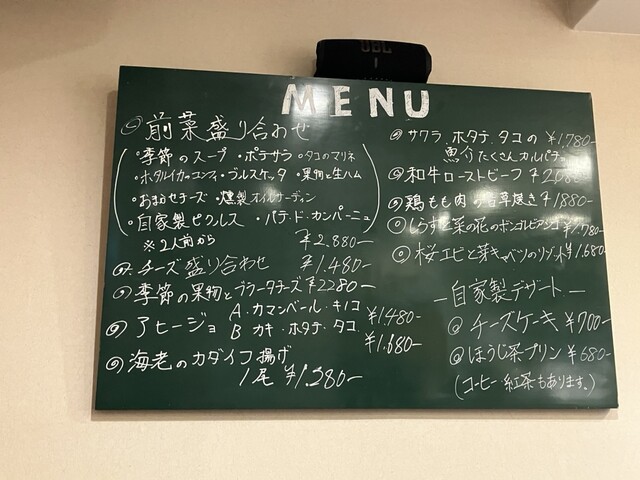 JBL
MENU
前菜盛り合わせ
・季節のスープ ・ポテサラ ・タコのマリネ
・ホタルイカのコンフィ ・ブルスケッタ ・果物と生ハム
・おまかせチーズ ・燻製オイルサーディン
・自家製ピクルス ・パテ・ド・カンパーニュ
※2人前から ¥2.880-
チーズ盛り合わせ ¥1.480-
季節の果物とブラータチーズ ¥2280-
アヒージョ A.カマンベール・キノコ ¥1480-
B カキ・ホタテ・タコ ¥1.680-
海老のカダイフ揚げ
1尾 ¥1.280-
サワラ、ホタテ、タコの ¥1.780-
魚介たくさんカルパチョ
和牛ローストビーフ
鶏もも肉の香草焼き ¥1880-
しらすと菜の花のボンゴレビアンコ ¥1.780-
桜エビと芽キャベツのリゾット ¥1.680-
―自家製デザート―
チーズケーキ ¥700-
ほうじ茶プリン ¥680-
(コーヒー・紅茶もあります。)